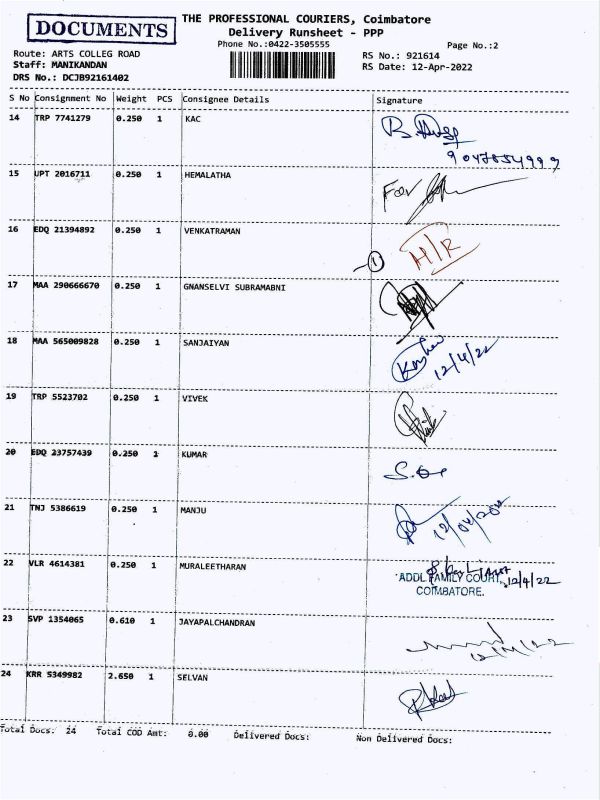 DOCUMENTS
THE PROFESSIONAL COURIERS, Coimbatore
Delivery Runsheet - PPP
Phone No.:0422-3505555
Page No.:2
Route: ARTS COLLEG ROAD
Staff: MANIKANDAN
DRS No.: DCJB92161402
RS No.: 921614
RS Date: 12-Apr-2022
S No Consignment No Weight PCS Consignee Details Signature
14 TRP 7741279 0.250 1 KAC
15 UPT 2016711 0.250 1 HEMALATHA
For
16 EDQ 21394892 0.250 1 VENKATRAMAN
H/R
1
17 MAA 290666670 0.250 1 GNANSELVI SUBRAMABNI
18 MAA 565009828 0.250 1 SANJAIYAN
12/4/22
19 TRP 5523702 0.250 1 VIVEK
20 EDQ 23757439 0.250 1 KUMAR
21 TNJ 5386619 0.250 1 MANJU
22 VLR 4614381 0.250 1 MURALEETHARAN
ADDL FAMILY COURT, 12/4/22
COIMBATORE.
23 SVP 1354065 0.610 1 JAYAPALCHANDRAN
24 KRR 5349982 2.650 1 SELVAN
Total Docs: 24 Total COD Amt: 0.00 Delivered Docs: Non Delivered Docs: